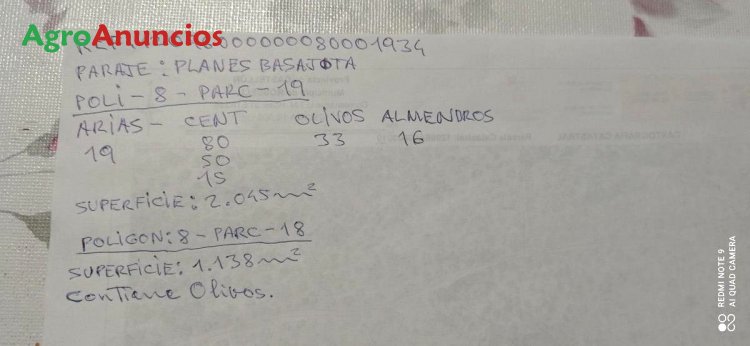 AgroAnuncios
PARAJE: PLANES BASAJOTA
POLI-8-PARC-19
ARIAS- CENT OLIVOS ALMENDROS
19 80 33 16
50
15
SUPERFICIE: 2.045m²
POLIGON:8-PARC-18
SUPERFICIE: 1.138m²
Contiene Olivos.
REDMI NOTE 9
AI QUAD CAMERA